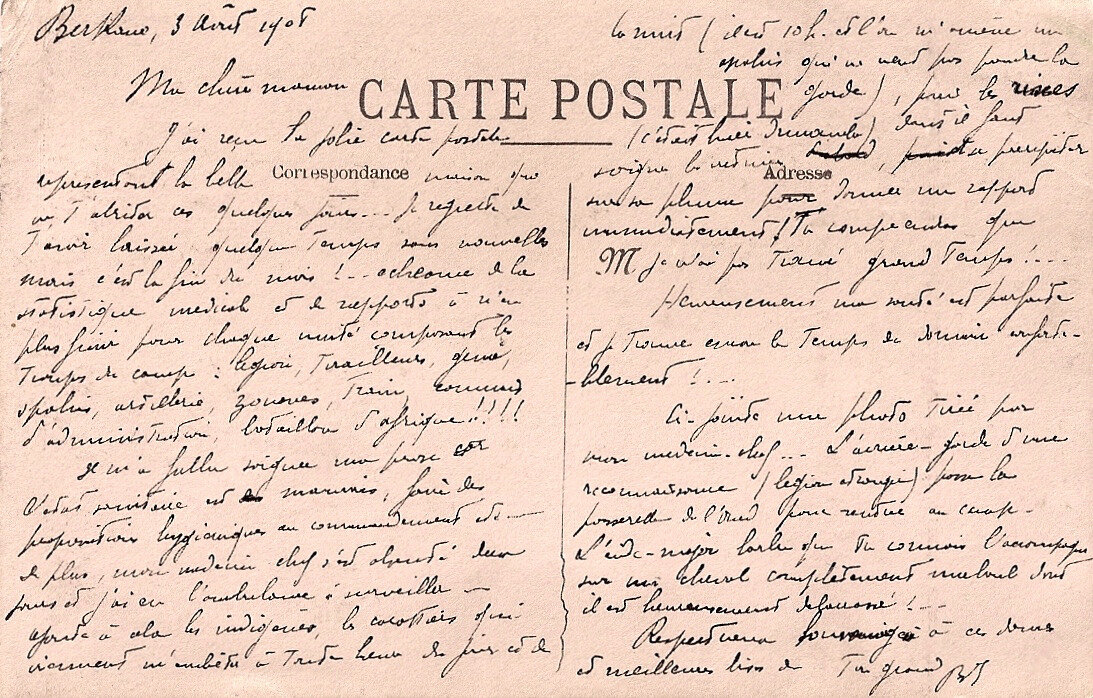 Berkane, 3 Août 1908
Ma chère maman
CARTE POSTALE
J'ai reçu ta jolie carte postale
Correspondance
représentant la belle maison qui
va t'abriter ces quelques jours... Je regrette de
t'avoir laissée quelque temps sans nouvelles
mais c'est la fin du mois !... de la
statistique médicale et de rapports à n'en
plus finir pour chaque unité composant les
troupes du camp : légion, tirailleurs, génie,
spahis, artillerie, zouaves, train, commis
d'administration, bataillon d'afrique !!!!
Il m'a fallu soigner ma prose car
l'état sanitaire est mauvais, faire des
propositions hygiéniques au commandement etc -
De plus, mon médecin chef s'est absenté deux
jours et j'ai eu l'ambulance à surveiller -
ajoute à cela les indigènes, les
viennent m'embêter à toute heure du jour et de
la nuit (il est 10 h. et l'on m'amène un
spahis qui ne veut pas prendre la
garde), puis les
(c'était hier Dimanche) dont il faut
Adresse
soigner se précipiter
sur sa plume pour donner un rapport
immédiatement ! Tu comprendras que
M
je n'ai pas trouvé grand temps !...
Heureusement ma santé est parfaite
et je trouve encore le temps de dormir conforta-
-blement !...
Ci-jointe une photo tirée par
mon médecin-chef... L'arrière-garde d'une
reconnaissance (légion étrangère) passe la
passerelle de l'oued pour rentrer au camp.
L'aide-major que tu connais l'accompagne
sur un cheval complètement dont
il est heureusement !...
Respectueux à ces dames
et meilleures bises de Ton grand